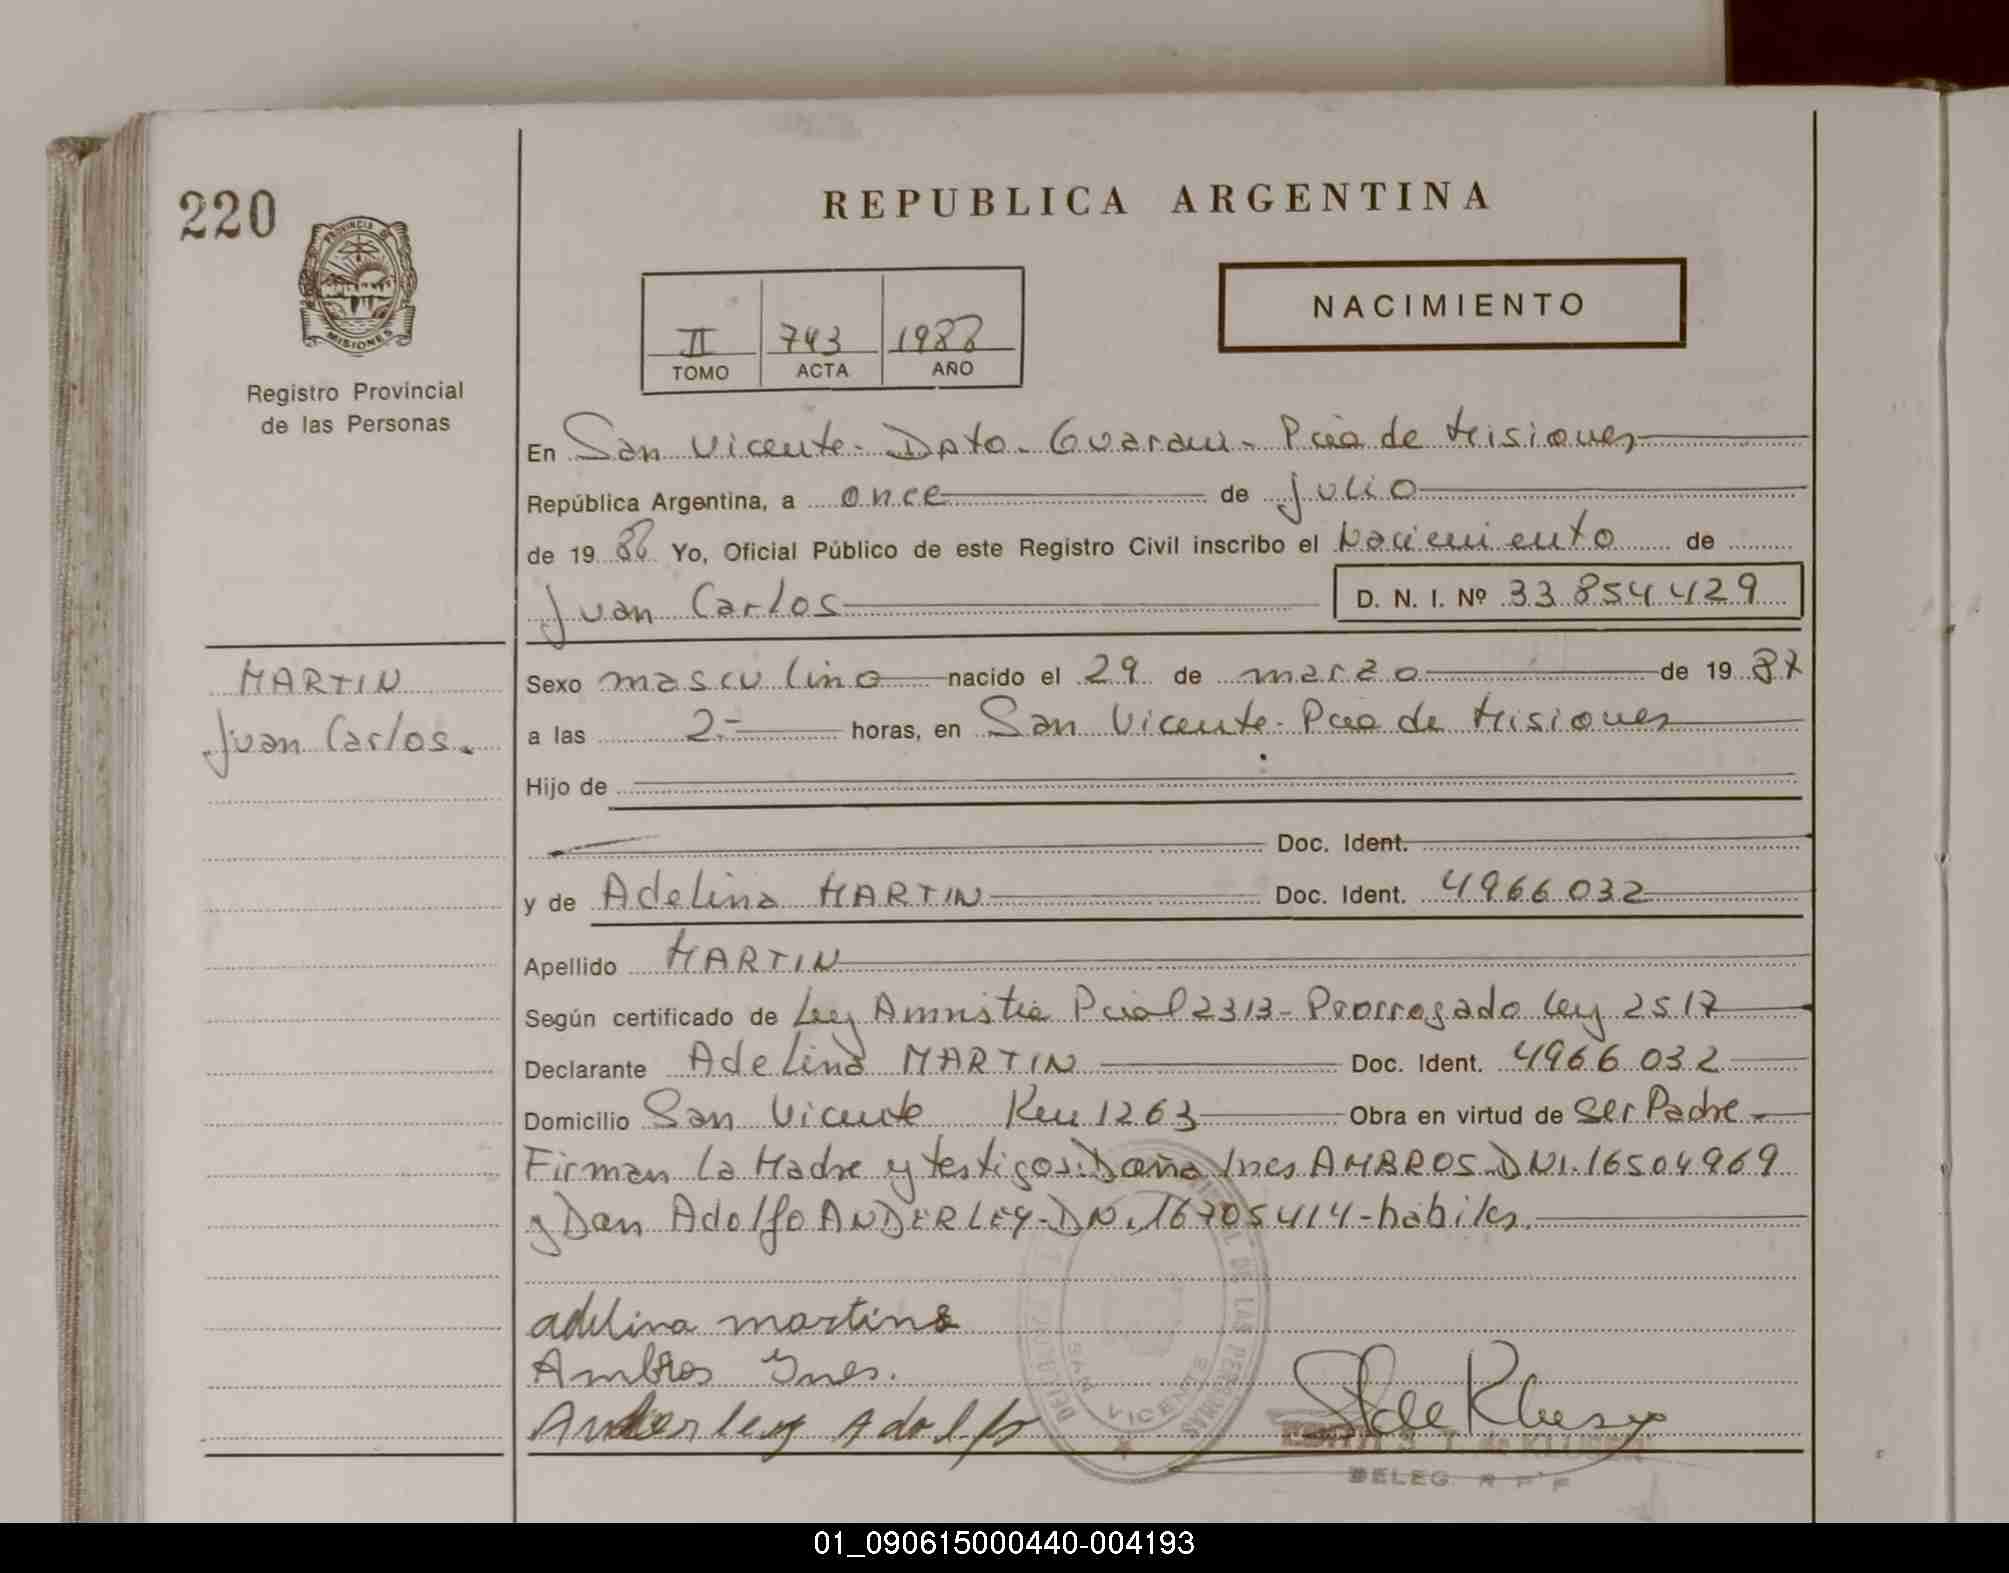 220
REPUBLICA ARGENTINA
PROVINCIA DE
MISIONES
NACIMIENTO
II 743 1988
TOMO ACTA AÑO
Registro Provincial
de las Personas
En San Vicente - Dpto. Guarani - Pcia de Misiones
República Argentina, a once de Julio
de 19 88 Yo, Oficial Público de este Registro Civil inscribo el Nacimiento de
Juan Carlos D. N. I. Nº 33 854 429
MARTIN
Juan Carlos.
Sexo masculino nacido el 29 de marzo de 19 87
a las 2.- horas, en San Vicente - Pcia de Misiones
Hijo de
Doc. Ident.
y de Adelina MARTIN Doc. Ident. 4966 032
Apellido MARTIN
Según certificado de Ley Amnistia Pcial 2313 - Prorrogado Ley 2517
Declarante Adelina MARTIN Doc. Ident. 4966 032
Domicilio San Vicente Km 1263 Obra en virtud de ser Padre -
Firman la Madre y testigos: Doña Ines AMBROS DNI. 16504969
y Don Adolfo ANDERLEY - DNI. 16705414 - habiles.
adelina martins
Ambros Ines.
Anderley Adolfo
DE LAS PERSONAS
SAN VICENTE
S. T. de KLUGE
DELEG. R P P
01_090615000440-004193